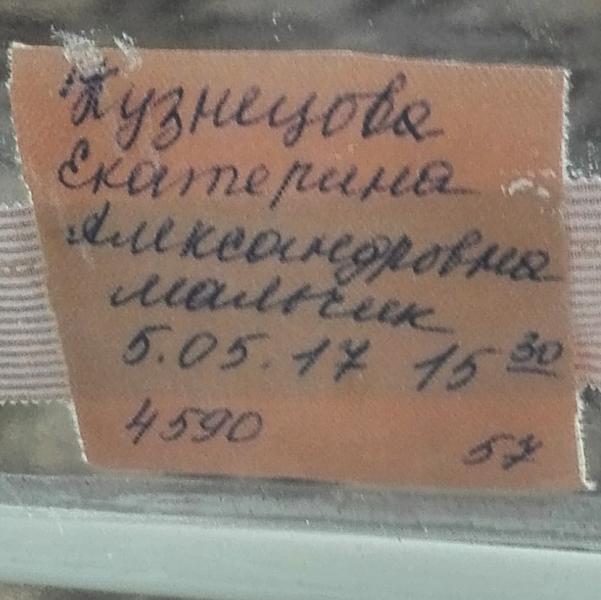 Кузнецова
Екатерина
Александровна
мальчик
5.05.17 15 30
4590 57